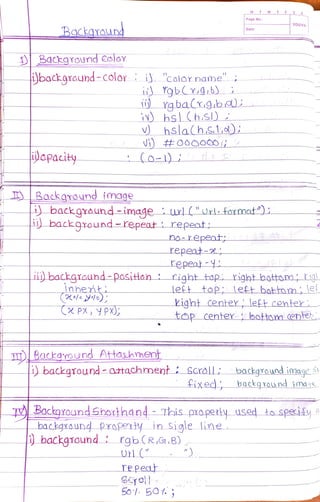 M T W T F S S
Page No.:
Date:
YOUVA
Background
I) Background Color
i) background-color : i) "color name" ;
ii) rgb(r,g,b) ;
iii) rgba(r,g,b,a);
iv) hsl (h,s,l) ;
v) hsla(h,s,l,a);
vi) #000000;
ii) opacity : (0-1) ;
II) Background image
i) background-image : url ("url.format");
ii) background-repeat : repeat;
no-repeat;
repeat-x;
repeat-y;
iii) background-position : right top; right bottom;
inherit; left top; left bottom;
(x%, y%); right center; left center;
(x px, y px); top center ; bottom center
III) Background Attachment
i) background-attachment : scroll; background image
fixed; background image
IV) Background Shorthand - This property used to specify
background property in sigle line.
i) background : rgb(R,G,B)
url (" ")
repeat
scroll
50% 50% ;